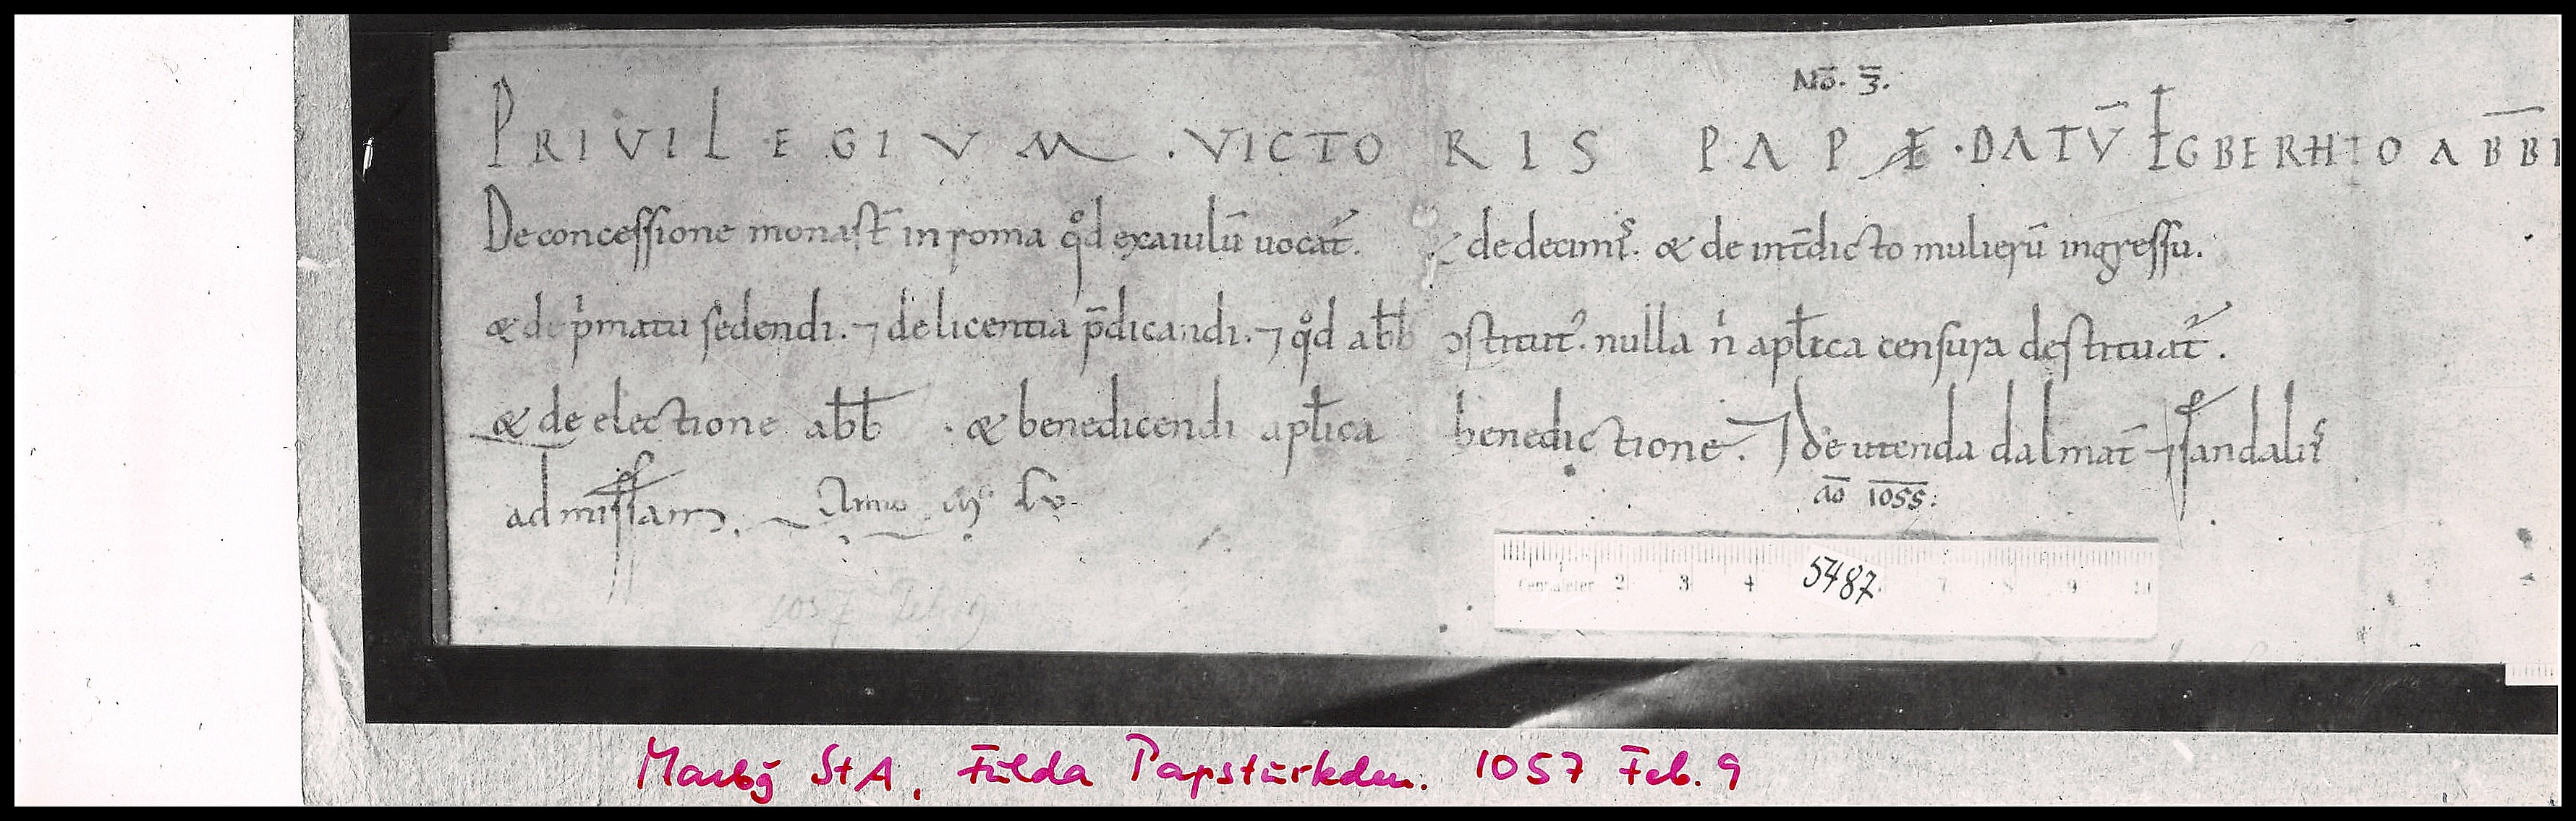 No. 3.
PRIVILEGIVM . VICTORIS PAPÆ . DATV̄ EGBERHTO ABB
De concessione monast̄ in roma qd̊ exaiulū uocat̄. & de decimis. & de int̄dicto mulierū ingressu.
& de p̍matu sedendi. ⁊ de licentia p̄dicandi. ⁊ qd̊ abb ꝯstitut᷒. nulla n̍ aplica censura destituat̄.
& de electione abb . & benedicendi aplica benedictione. ⁊ de utenda dalmat̄ ⁊ sandaliis
ad missam. Anno Mº Lv
aō 1055.
Centimeter 2 3 4 5487 7 8 9 10
1057 Feb. 9
Marbg StA, Fulda Papsturkden. 1057 Feb. 9